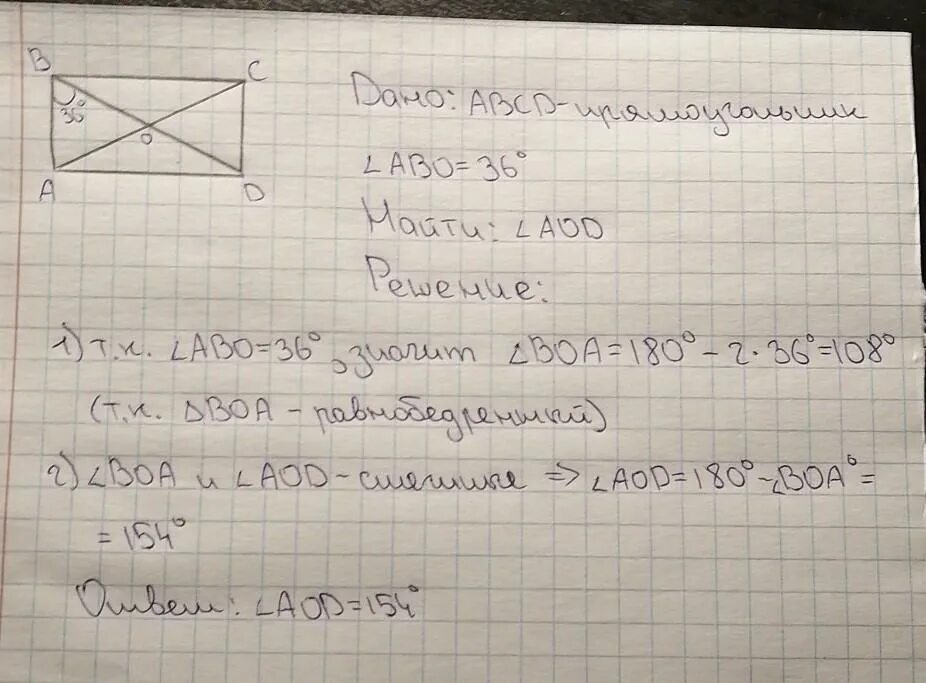 B
C
36°
O
A
D
Дано: ABCD-прямоугольник
∠ABO=36°
Найти: ∠AOD
Решение:
1) т.к. ∠ABO=36°, значит ∠BOA=180°-2·36°=108°
(т.к. ΔBOA-равнобедренный)
2) ∠BOA и ∠AOD-смежные => ∠AOD=180°-∠BOA°=
=154°
Ответ: ∠AOD=154°